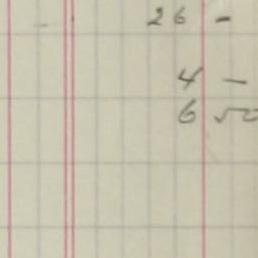 26 -
4 -
6 50